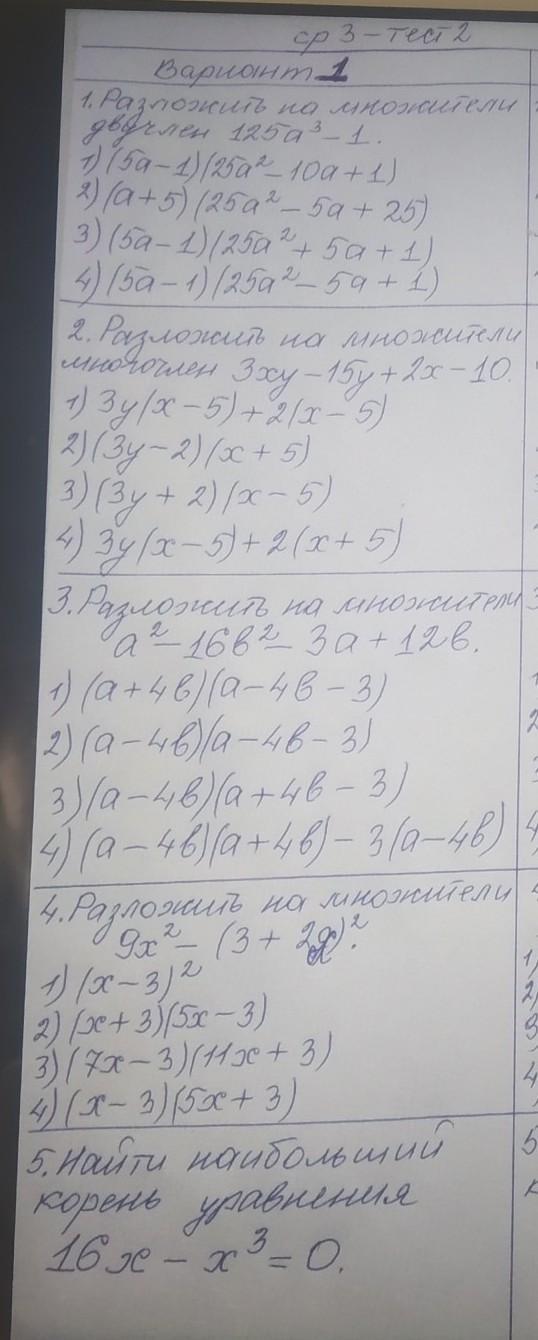 ср 3 - тест 2
Вариант 1
1. Разложить на множители
двучлен 125a³ - 1.
1) (5a - 1)(25a² - 10a + 1)
2) (a + 5)(25a² - 5a + 25)
3) (5a - 1)(25a² + 5a + 1)
4) (5a - 1)(25a² - 5a + 1)
2. Разложить на множители
многочлен 3xy - 15y + 2x - 10.
1) 3y(x - 5) + 2(x - 5)
2) (3y - 2)(x + 5)
3) (3y + 2)(x - 5)
4) 3y(x - 5) + 2(x + 5)
3. Разложить на множители
a² - 16b² - 3a + 12b.
1) (a + 4b)(a - 4b - 3)
2) (a - 4b)(a - 4b - 3)
3) (a - 4b)(a + 4b - 3)
4) (a - 4b)(a + 4b) - 3(a - 4b)
4. Разложить на множители
9x² - (3 + 2x)².
1) (x - 3)²
2) (x + 3)(5x - 3)
3) (7x - 3)(11x + 3)
4) (x - 3)(5x + 3)
5. Найти наибольший
корень уравнения
16x - x³ = 0.